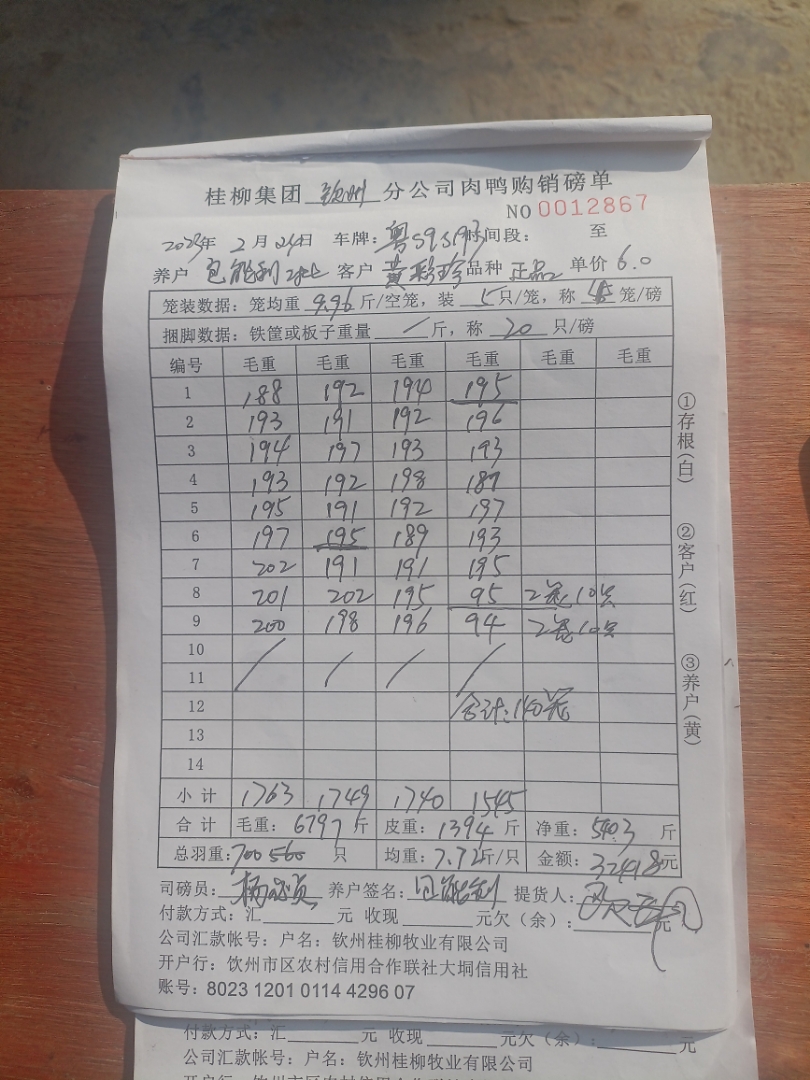 桂柳集团 钦州 分公司肉鸭购销磅单
NO 0012867
2023年 2月 24日 车牌: 粤S9S193 时间段: 至
养户 客户 黄彩珍 品种 正品 单价 6.0
笼装数据: 笼均重 9.96 斤/空笼, 装 5 只/笼, 称 笼/磅
捆脚数据: 铁筐或板子重量 / 斤, 称 20 只/磅
编号 毛重 毛重 毛重 毛重 毛重 毛重
1 188 192 194 195
2 193 191 192 196
3 194 197 193 193
4 193 192 198 187
5 195 191 192 197
6 197 195 189 193
7 202 191 191 195
8 201 202 195 95 2笼10只
9 200 198 196 94 2笼10只
10
11 / / / /
12 合计:140笼
13
14
小计 1763 1749 1740 1545
合计 毛重: 6797 斤 皮重: 1394 斤 净重: 5403 斤
总羽重: 700 560 只 均重: 7.72 斤/只 金额: 32418元
司磅员: 养户签名: 提货人:
付款方式: 汇 元 收现 元欠(余): 元
公司汇款帐号: 户名: 钦州桂柳牧业有限公司
开户行: 钦州市区农村信用合作联社大垌信用社
账号: 8023 1201 0114 4296 07
①存根(白)
②客户(红)
③养户(黄)
付款方式: 汇 元 收现 元欠(余): 元
公司汇款帐号: 户名: 钦州桂柳牧业有限公司